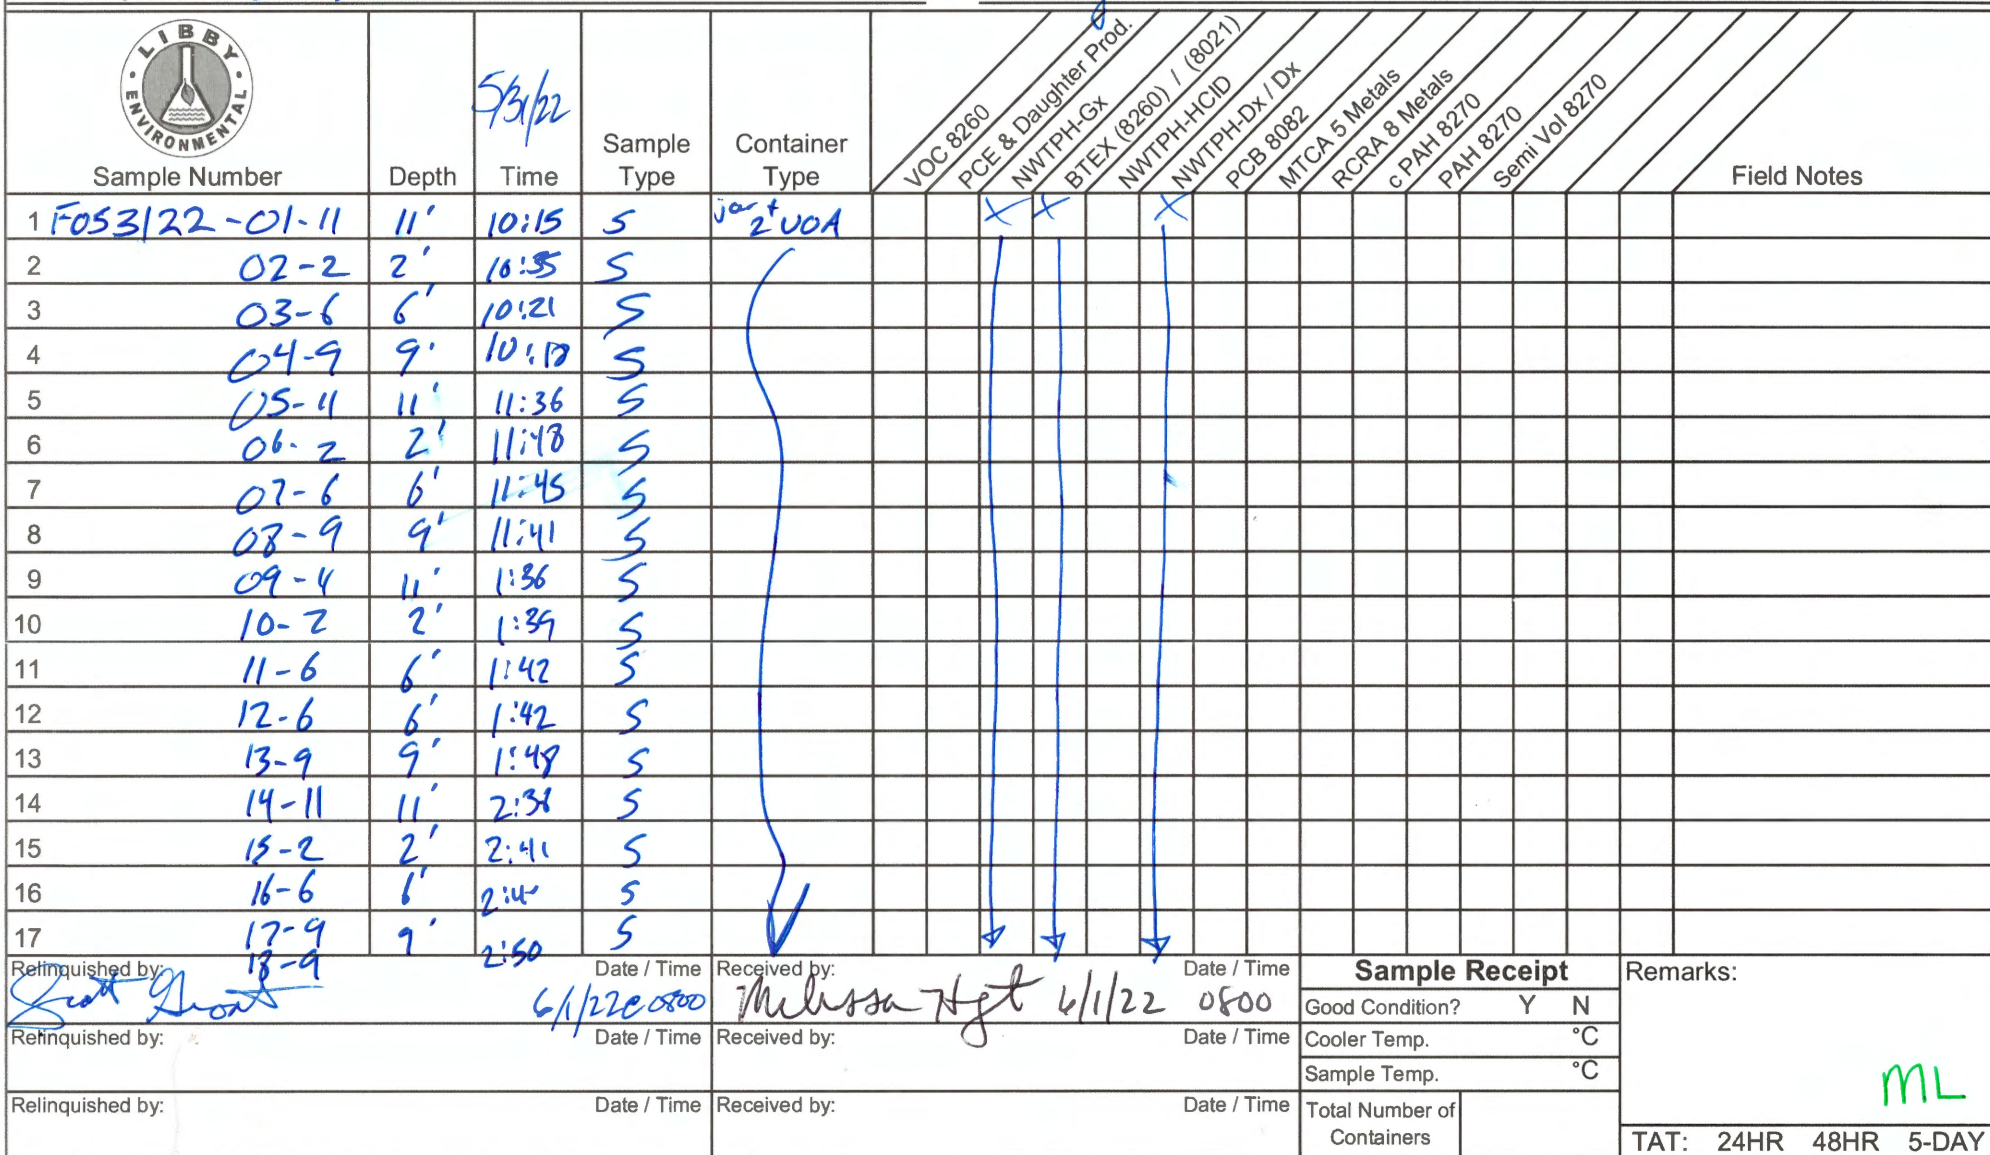 LIBBY
ENVIRONMENTAL
5/31/22
Sample Number Depth Time Sample Type Container Type VOC 8260 PCE & Daughter Prod. NWTPH-Gx BTEX (8260) / (8021) NWTPH-HCID NWTPH-Dx / Dx PCB 8082 MTCA 5 Metals RCRA 8 Metals c PAH 8270 PAH 8270 Semi Vol 8270 Field Notes
1 F053122-01-11 11' 10:15 S jar + 2 VOA X X X
2 02-2 2' 10:35 S
3 03-6 6' 10:21 S
4 04-9 9' 10:18 S
5 05-11 11' 11:36 S
6 06-2 2' 11:48 S
7 07-6 6' 11:45 S
8 08-9 9' 11:41 S
9 09-11 11' 1:36 S
10 10-2 2' 1:39 S
11 11-6 6' 1:42 S
12 12-6 6' 1:42 S
13 13-9 9' 1:48 S
14 14-11 11' 2:38 S
15 15-2 2' 2:41 S
16 16-6 6' S
17 17-9 9' 2:50 S
18-9
Relinquished by: Scott Date / Time 6/1/22 @ 0800 Received by: Melissa Date / Time 6/1/22 0800
Sample Receipt
Good Condition? Y N
Remarks:
Relinquished by: Date / Time Received by: Date / Time Cooler Temp. °C
Sample Temp. °C
ML
Relinquished by: Date / Time Received by: Date / Time Total Number of Containers
TAT: 24HR 48HR 5-DAY